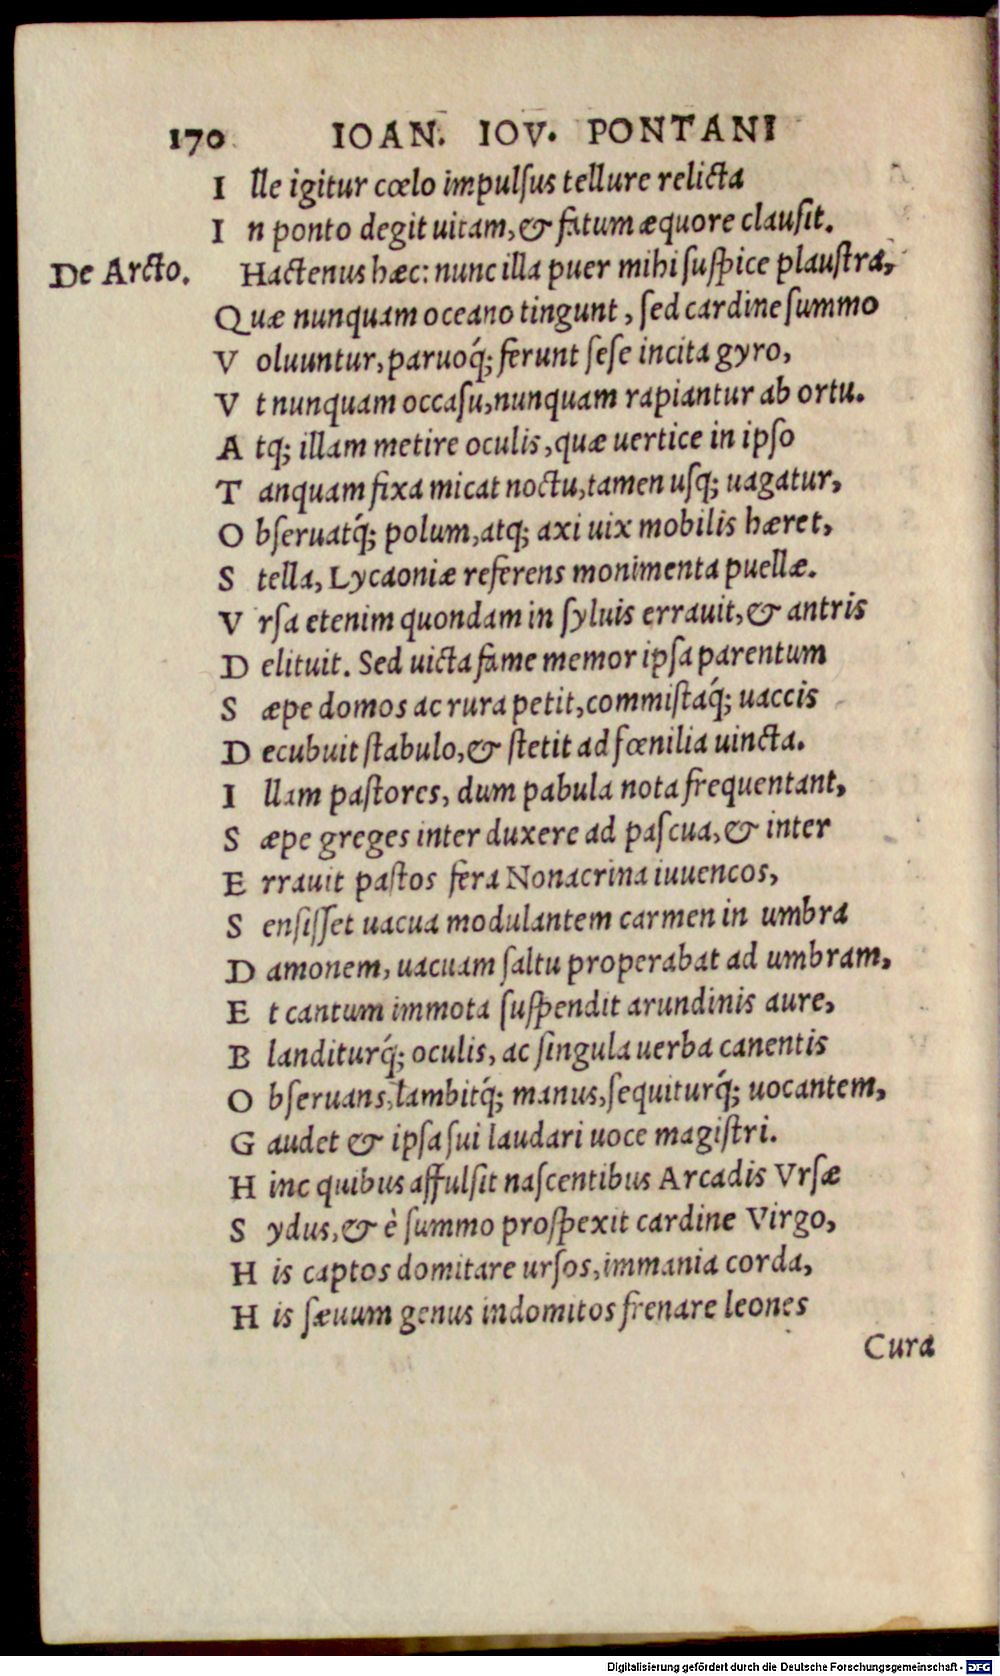 170 IOAN. IOV. PONTANI
I lle igitur cœlo impulſus tellure relicta
I n ponto degit uitam, & fatum æquore clauſit.
De Arcto. Hactenus hæc: nunc illa puer mihi ſuſpice plauſtra,
Q uæ nunquam oceano tingunt, ſed cardine ſummo
V oluuntur, paruoq́; ferunt ſeſe incita gyro,
V t nunquam occaſu, nunquam rapiantur ab ortu.
A tq; illam metire oculis, quæ uertice in ipſo
T anquam fixa micat noctu, tamen uſq; uagatur,
O bſeruatq́; polum, atq; axi uix mobilis hæret,
S tella, Lycaoniæ referens monimenta puellæ.
V rſa etenim quondam in ſyluis errauit, & antris
D elituit. Sed uicta fame memor ipſa parentum
S æpe domos ac rura petit, commiſtaq́; uaccis
D ecubuit ſtabulo, & ſtetit ad fœnilia uincta.
I llam paſtores, dum pabula nota frequentant,
S æpe greges inter duxere ad paſcua, & inter
E rrauit paſtos fera Nonacrina iuuencos,
S enſiſſet uacua modulantem carmen in umbra
D amonem, uacuam ſaltu properabat ad umbram,
E t cantum immota ſuſpendit arundinis aure,
B landiturq́; oculis, ac ſingula uerba canentis
O bſeruans, lambitq́; manus, ſequiturq́; uocantem,
G audet & ipſa ſui laudari uoce magiſtri.
H inc quibus affulſit naſcentibus Arcadis Vrſæ
S ydus, & è ſummo proſpexit cardine Virgo,
H is captos domitare urſos, immania corda,
H is ſæuum genus indomitos frenare leones
Cura
Digitalisierung gefördert durch die Deutsche Forschungsgemeinschaft - DFG